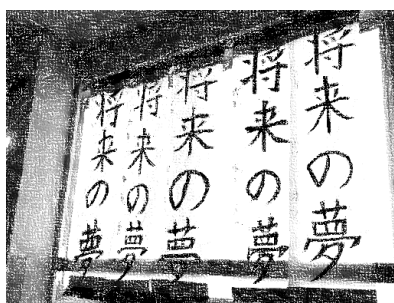 将来の夢
将来の夢
将来の夢
将来の夢
将来の夢